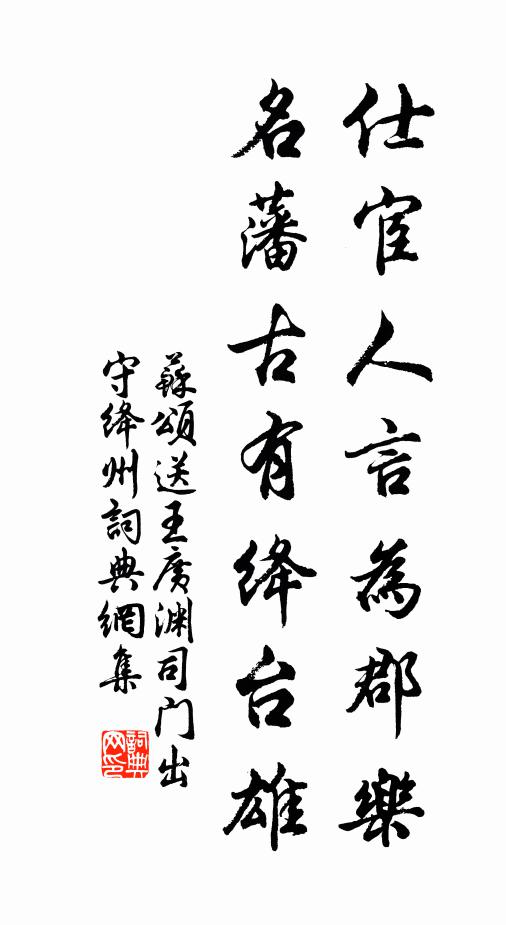 仕宦人言為郡樂
名藩古有絳台雄
蘇頌送王廣淵司门出
守絳州詞典網集
詞典网印